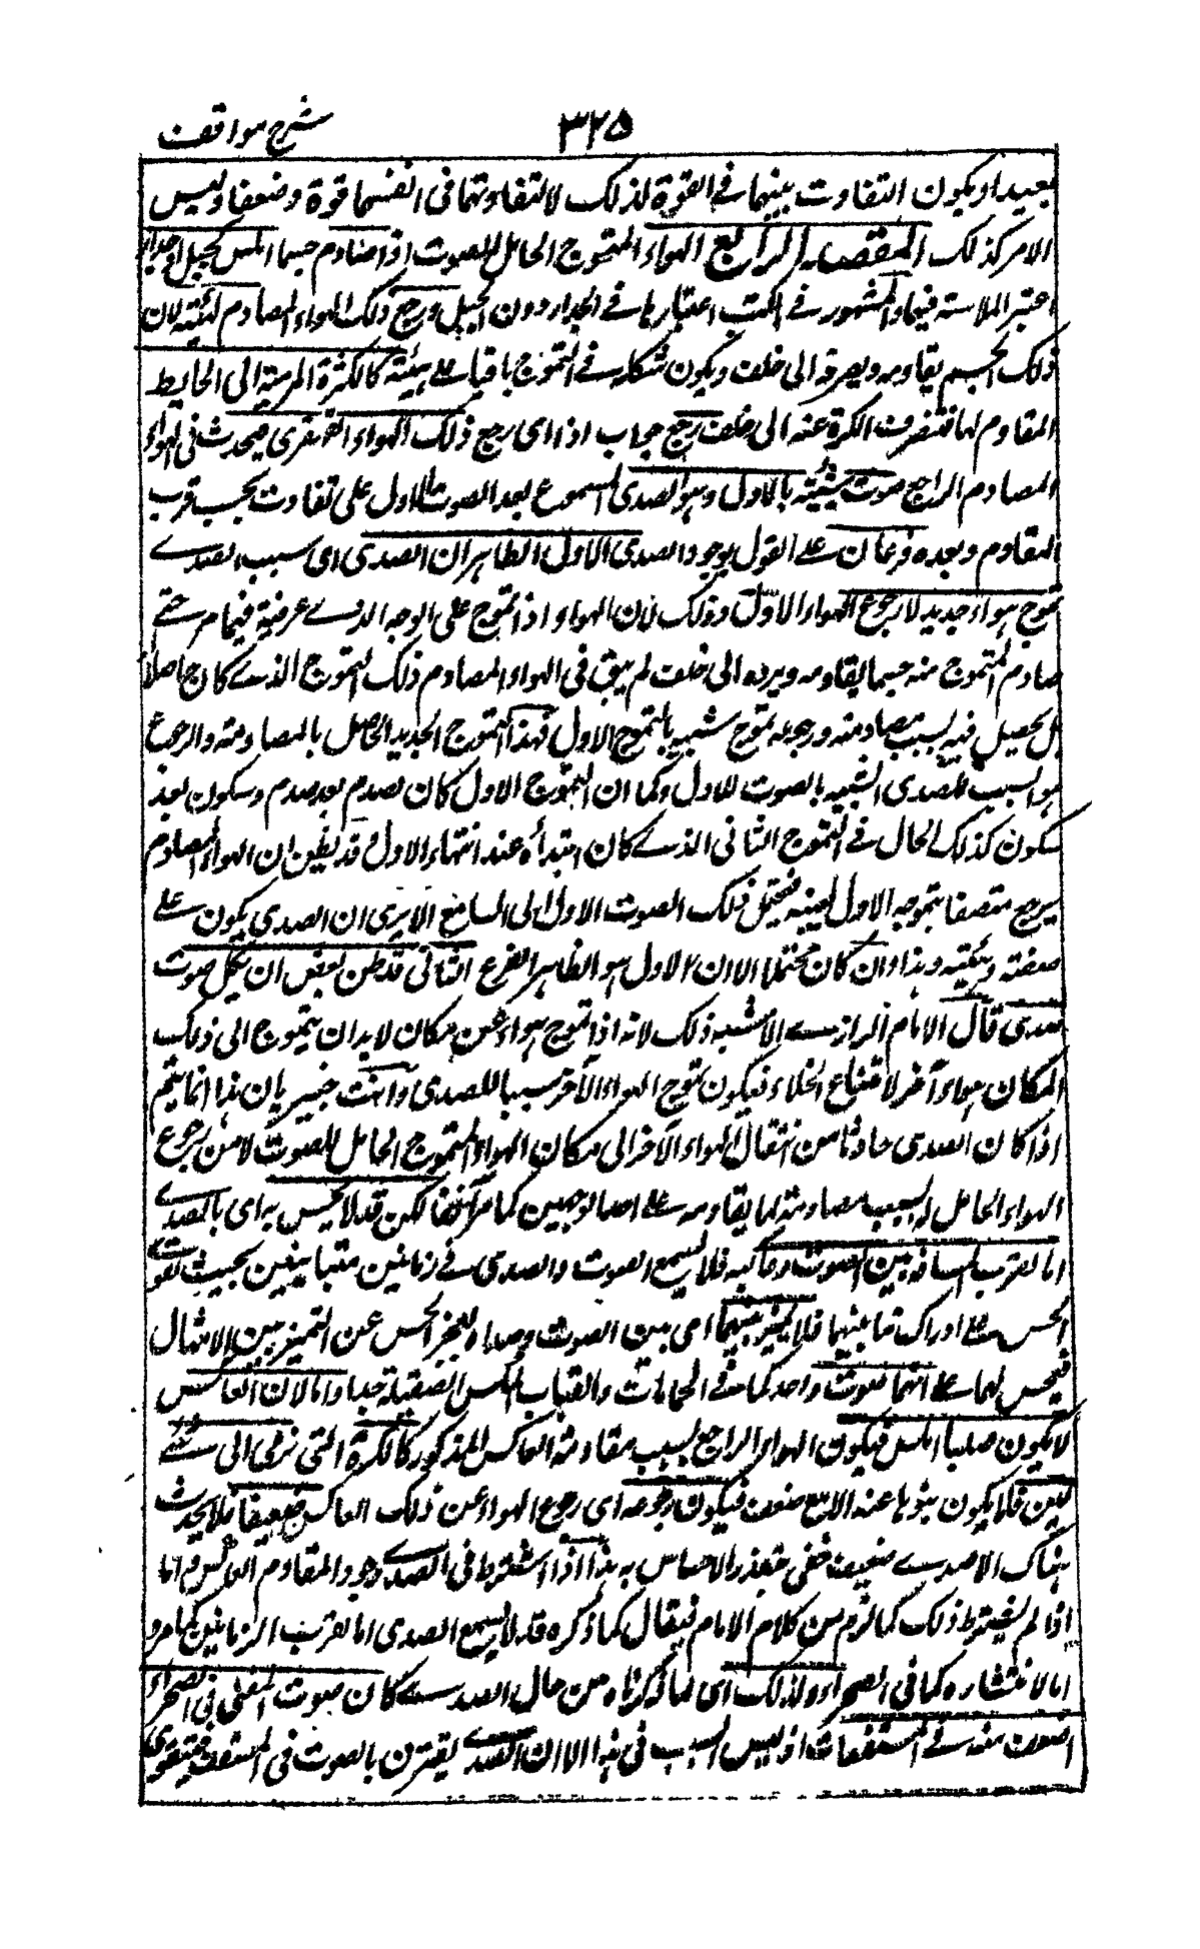 ٣٢٥
شرح مواقف
بعيد او يكون التفاوت بينهما في القوة لذلك لا لتفاوتهما فى انفسهما قوة وضعفا وليس
الامر كذلك المقصد الرابع الهواء المتموج الحامل للصوت اذا صادم جسما املس كجبل او جدار
اعتبر الملاسة فيهما والمشهور في الكتب اعتبارها في الجدار دون الجبل ورجع ذلك الهواء المصادم لهيئته لان
ذلك الجسم يقاومه ويصرفه الى خلف ويكون شكله في التموج باقيا على هيئته كالكرة المرمية الى الحايط
المقاوم لها فتنصرف الكرة عنه الى خلف رجع جواب اذا اى رجع ذلك الهواء القهقرى فيحدث فى الهواء
المصادم الراجع صوت شبيه بالاول وهو الصدى المسموع بعد الصوت الاول على تفاوت بحسب قرب
المقاوم وبعده فرعان على القول بوجود الصدى الاول الظاهر ان الصدى اى سبب الصدى
تموج هواء جديد لا رجوع الهواء الاول وذلك لان الهواء اذا تموج على الوجه الذى عرفته فيما مر حتى
صادم المتموج منه جسما يقاومه ويرده الى خلف لم يبق فى الهواء المصادم ذلك التموج الذى كان حاصلا
بل يحصل فيه بسبب مصادمته ورجوعه تموج شبيه بالتموج الاول فهذا التموج الجديد الحاصل بالمصادمة والرجوع
هو السبب للصدى الشبيه بالصوت الاول وكما ان التموج الاول كان بصدم بعد صدم وسكون بعد
سكون كذلك الحال في التموج الثانى الذى كان ابتدأه عند انتهاء الاول قد يظن ان الهواء المصادم
يرجع متصفا بتموجه الاول بعينه فيحمل ذلك الصوت الاول الى السامع الا يرى ان الصدى يكون على
صفته وهيئته وهذا وان كان محتملا الا ان الاول هو الظاهر الفرع الثانى قد ظن بعض ان لكل صوت
صدى قال الامام الرازى الاشبه ذلك لانه اذا تموج هواء عن مكان لا بد ان يتموج الى ذلك
المكان هواء آخر لامتناع الخلاء فيكون تموج الهواء الآخر سببا للصدى وانت خبير بان هذا انما يتم
اذا كان الصدى حادثا من انتقال الهواء الآخر الى مكان الهواء المتموج الحامل للصوت لا من رجوع
الهواء الحامل له بسبب مصادمته لما يقاومه على احد الوجهين كما مر آنفا لكن قد لا يحس به اى بالصدى
اما لقرب المسافة بين الصوت وعاكسه فلا يسمع الصوت والصدى في زمانين متباينين بحيث تقوى
الحس على ادراك تباينهما فلا يميز بينهما اى بين الصوت وصداه لعجز الحس عن التمييز بين الامثال
فيحس بهما على انهما صوت واحد كما في الحمامات والقباب الملس الصقيلة جدا واما لان العاكس
لا يكون صلبا املس فيكون الهواء الراجع بسبب مقاومة العاكس المذكور كالكرة التى ترمى الى شئ
لين فلا يكون نبوها عنه الا مع ضعف فيكون رجوعه اى رجوع الهواء عن ذلك العاكس ضعيفا فلا يحدث
هناك الا صدى ضعيف خفى متعذر الاحساس به هذا اذا اشترط فى الصدى وجود المقاوم العاكس واما
اذا لم يشترط ذلك كما لزم من كلام الامام فيقال كما ذكره قد لا يسمع الصدى اما لقرب الزمانين كما مر و
اما لانتشاره كما فى الصحراء ولذلك اى لما ذكرناه من حال الصدى كان صوت المغنى فى الصحراء
اضعف منه في المسقفات اذ ليس السبب فى هذا الا ان الصدى يقترن بالصوت فى المسقف فيتقوى